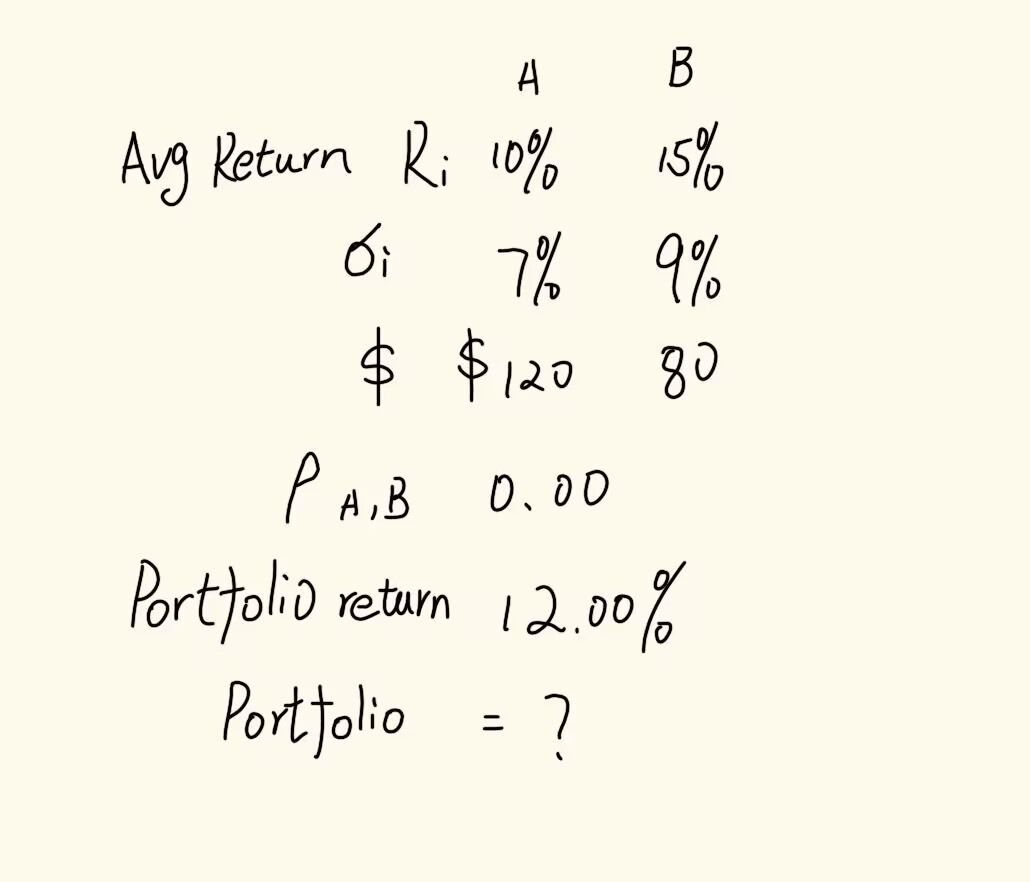 A B
Avg Return Ri 10% 15%
σi 7% 9%
$ $120 80
ρ A,B 0.00
Portfolio return 12.00%
Portfolio = ?